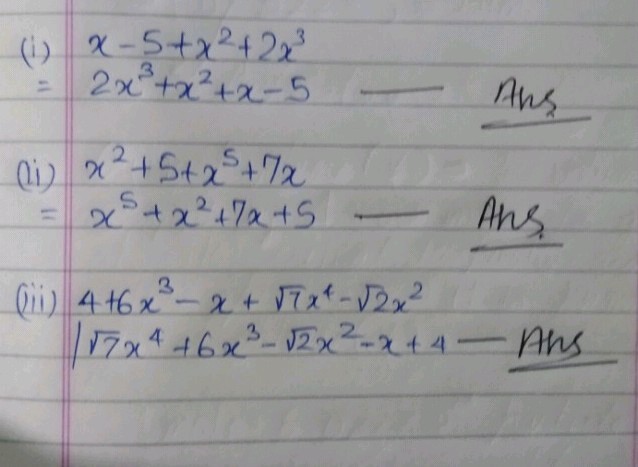 (i) x - 5 + x² + 2x³
= 2x³ + x² + x - 5 — Ans
(ii) x² + 5 + x⁵ + 7x
= x⁵ + x² + 7x + 5 — Ans
(iii) 4 + 6x³ - x + √7x⁴ - √2x²
| √7x⁴ + 6x³ - √2x² - x + 4 — Ans